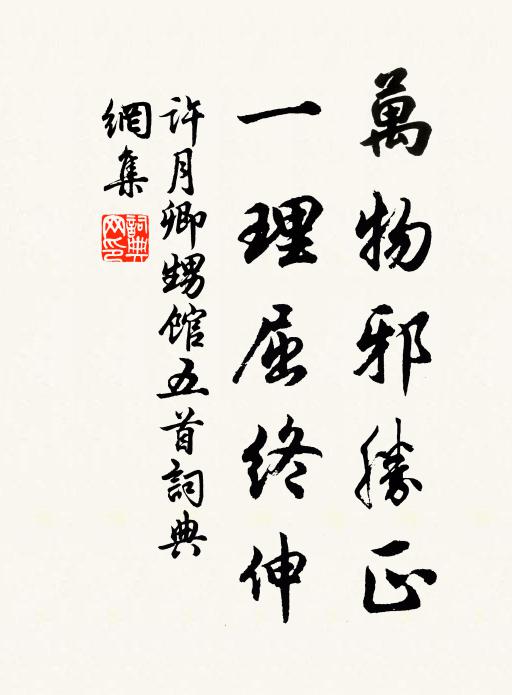 萬物邪勝正
一理屈終伸
許月卿甥館五首詞典
網集
詞典網印